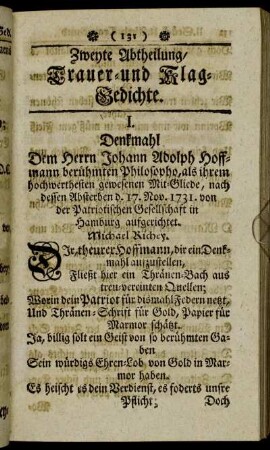 (131)
Zweyte Abtheilung/
Trauer-und Klag-
Gedichte.
I.
Denkmahl
Dem Herrn Johann Adolph Hoff-
mann berühmten Philosopho, als ihrem
hochwerthesten gewesenen Mit-Gliede, nach
dessen Absterben d. 17. Nov. 1731. von
der Patriotischen Gesellschaft in
Hamburg aufgerichtet.
Michael Richey.
Dir, theurer Hoffmann, dir ein Denk-
mahl anzustellen,
Fließt hier ein Thränen-Bach aus
treu-vereinten Quellen;
Worin dein Patriot für dismahl Federn netzt,
Und Thränen-Schrift für Gold, Papier für
Marmor schätzt.
Ja, billig solt ein Geist von so berühmten Ga-
ben
Sein würdigs Ehren-Lob von Gold in Mar-
mor haben.
Es heischt es dein Verdienst, es foderts unsre
Pflicht; Doch